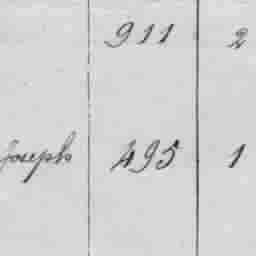 911 2
Joseph 495 1